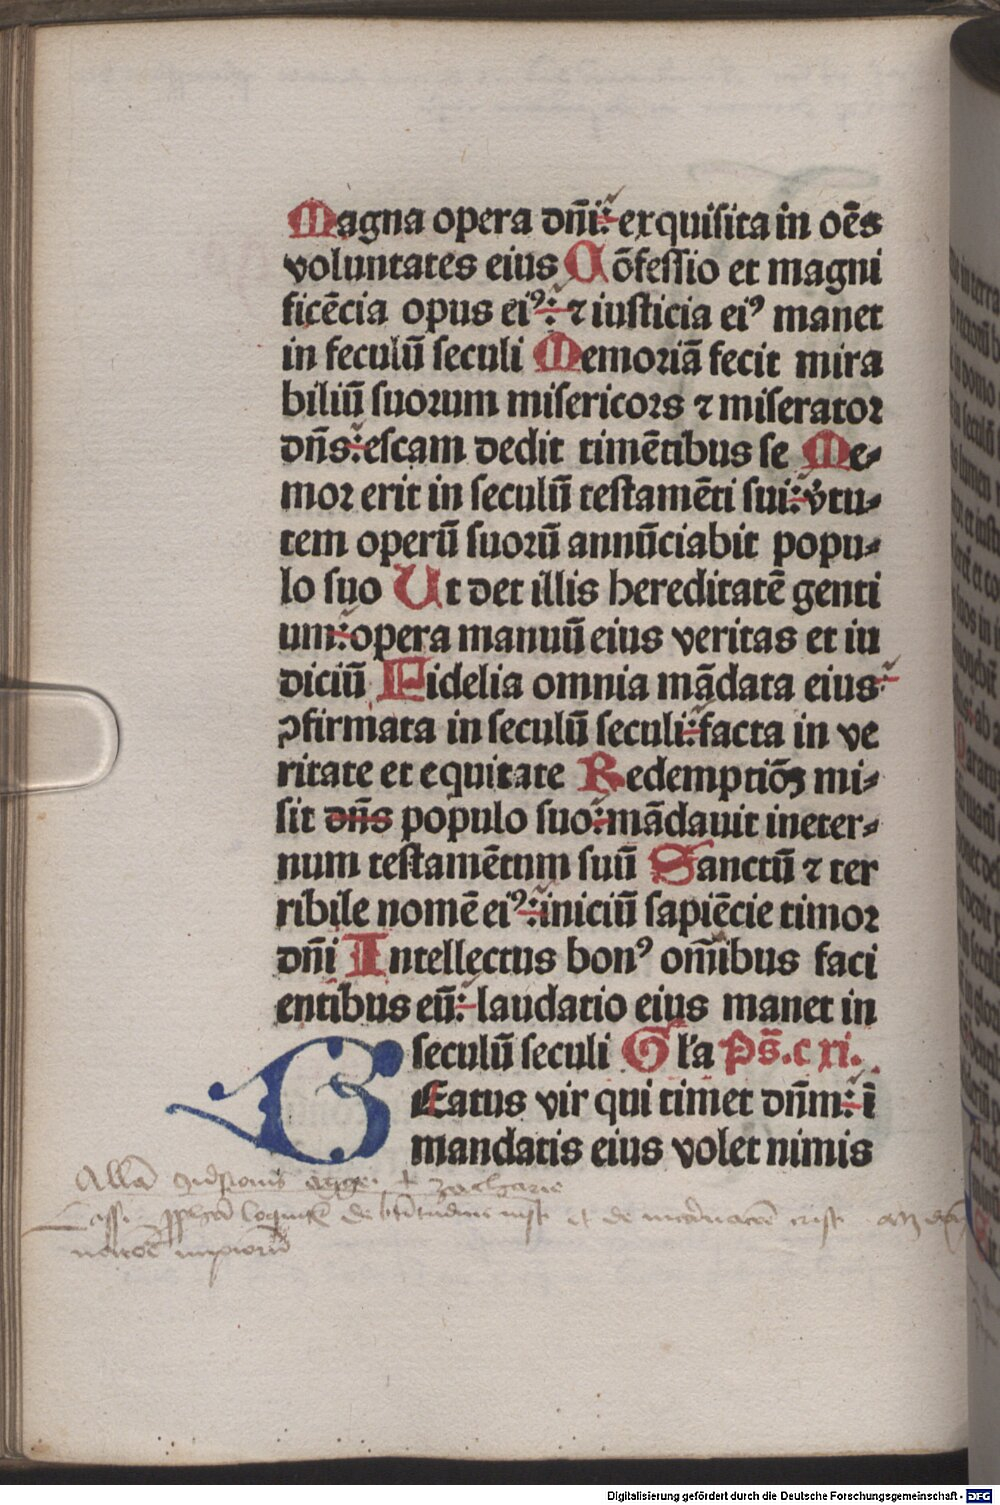 Magna opera dñi: exquisita in oēs
voluntates eius Cōfessio et magni
ficēcia opus eiꝰ: ⁊ iusticia eiꝰ manet
in seculū seculi Memoriā fecit mira
biliū suorum misericors ⁊ miserator
dñs: escam dedit timētibus se Me⸗
mor erit in seculū testamēti sui: v̓tu⸗
tem operū suorū annūciabit popu⸗
lo suo Ut det illis hereditatē genti
um: opera manuū eius veritas et iu
diciū Fidelia omnia mādata eius:
ꝯfirmata in seculū seculi: facta in ve
ritate et equitate Redemptiōꝫ mi⸗
sit dñs populo suo: mādauit ineter⸗
num testamētum suū Sanctū ⁊ ter
ribile nomē eiꝰ: iniciū sapiēcie timor
dñi Intellectus bonꝰ om̄ibus faci
entibus eū: laudatio eius manet in
seculū seculi Gl'a Ps̄. c xi.
BEatus vir qui timet dñm: ī
mandatis eius volet nimis
Allā aggei zacharie
de et de
impiorū
Digitalisierung gefördert durch die Deutsche Forschungsgemeinschaft - DFG